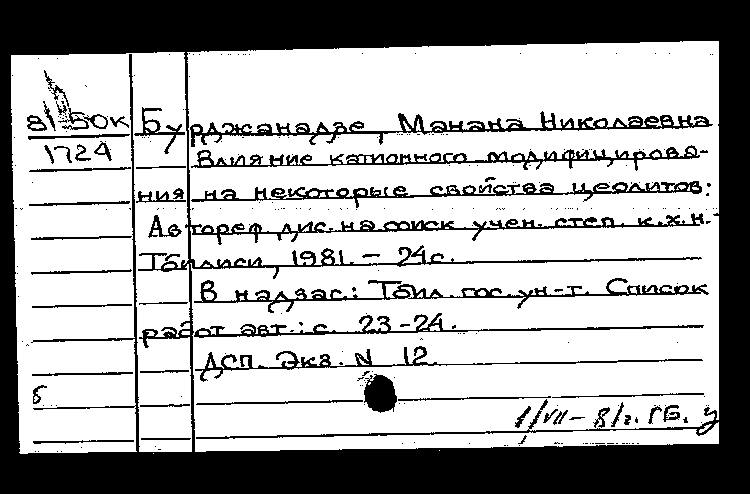 81-50к Бурджанадзе, Манана Николаевна
1724 Влияние катионного модифицирова-
ния на некоторые свойства цеолитов:
Автореф. дис. на соиск учен. степ. к.х.н.-
Тбилиси, 1981. - 24с.
В надзаг.: Тбил. гос. ун-т. Список
работ авт.: с. 23-24.
ДСП. Экз. N 12.
б
1/VII-81г. ГБ.